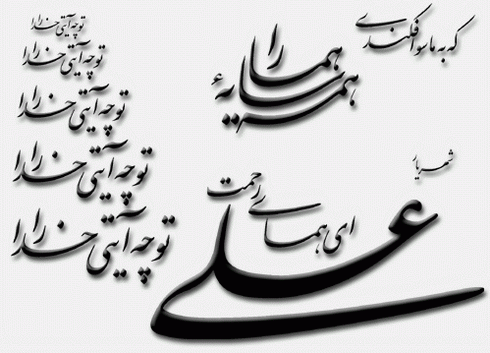 علی
ای همای رحمت
تو چه آیتی خدا را
تو چه آیتی خدا را
تو چه آیتی خدا را
تو چه آیتی خدا را
تو چه آیتی خدا را
که به ماسوا فکندی
همه سایهٔ هما را
شهریار